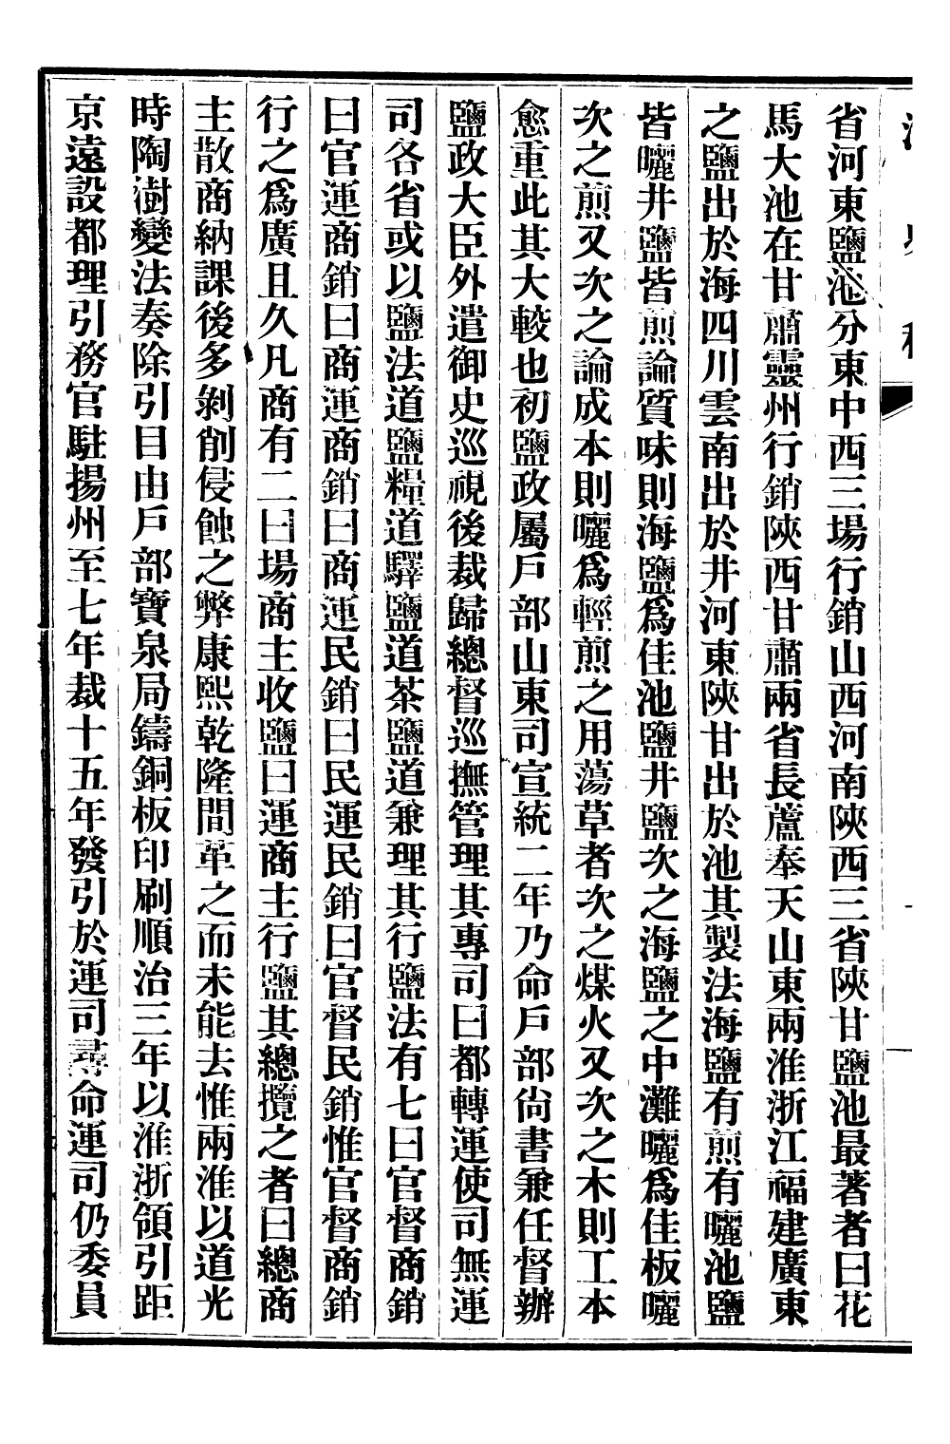 省河東鹽池分東中西三場行銷山西河南陝西三省陝甘鹽池最著者曰花
馬大池在甘肅靈州行銷陝西甘肅兩省長蘆奉天山東兩淮浙江福建廣東
之鹽出於海四川雲南出於井河東陝甘出於池其製法海鹽有煎有曬池鹽
皆曬井鹽皆煎論質味則海鹽爲佳池鹽井鹽次之海鹽之中灘曬爲佳板曬
次之煎又次之論成本則曬爲輕煎之用蕩草者次之煤火又次之木則工本
愈重此其大較也初鹽政屬戶部山東司宣統二年乃命戶部尙書兼任督辦
鹽政大臣外遣御史巡視後裁歸總督巡撫管理其專司曰都轉運使司無運
司各省或以鹽法道鹽糧道驛鹽道茶鹽道兼理其行鹽法有七曰官督商銷
曰官運商銷曰商運商銷曰商運民銷曰民運民銷曰官督民銷惟官督商銷
行之爲廣且久凡商有二曰場商主收鹽曰運商主行鹽其總攬之者曰總商
主散商納課後多剝削侵蝕之弊康熙乾隆間革之而未能去惟兩淮以道光
時陶澍變法奏除引目由戶部寶泉局鑄銅板印刷順治三年以淮浙領引距
京遠設都理引務官駐揚州至七年裁十五年發引於運司尋命運司仍委員